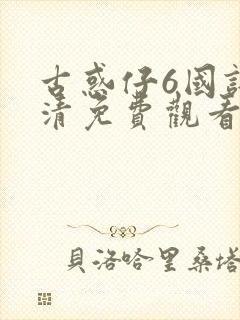 古惑仔6國
清免費觀看
貝洛哈里桑塔